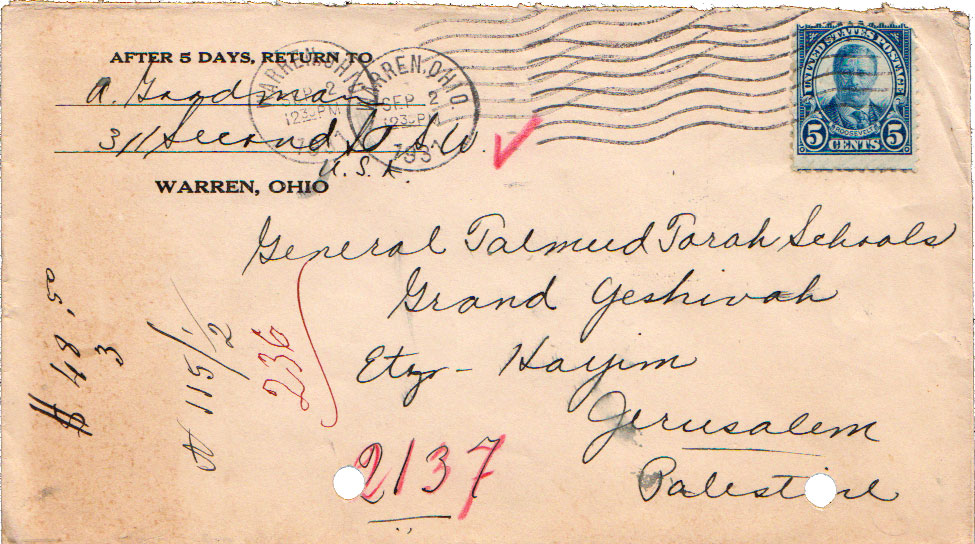 AFTER 5 DAYS, RETURN TO
A. Goodman
311 Second St S.W.
U.S.A.
WARREN, OHIO
WARREN, OHIO
SEP 2
12 30 PM
WARREN, OHIO
SEP 2
12 30 PM
193
UNITED STATES POSTAGE
ROOSEVELT
5 CENTS 5
General Talmud Torah Schools
Grand Yeshivah
Etz - Hayim
Jerusalem
Palestine
$ 48.50
3
115 1/2
236
2137